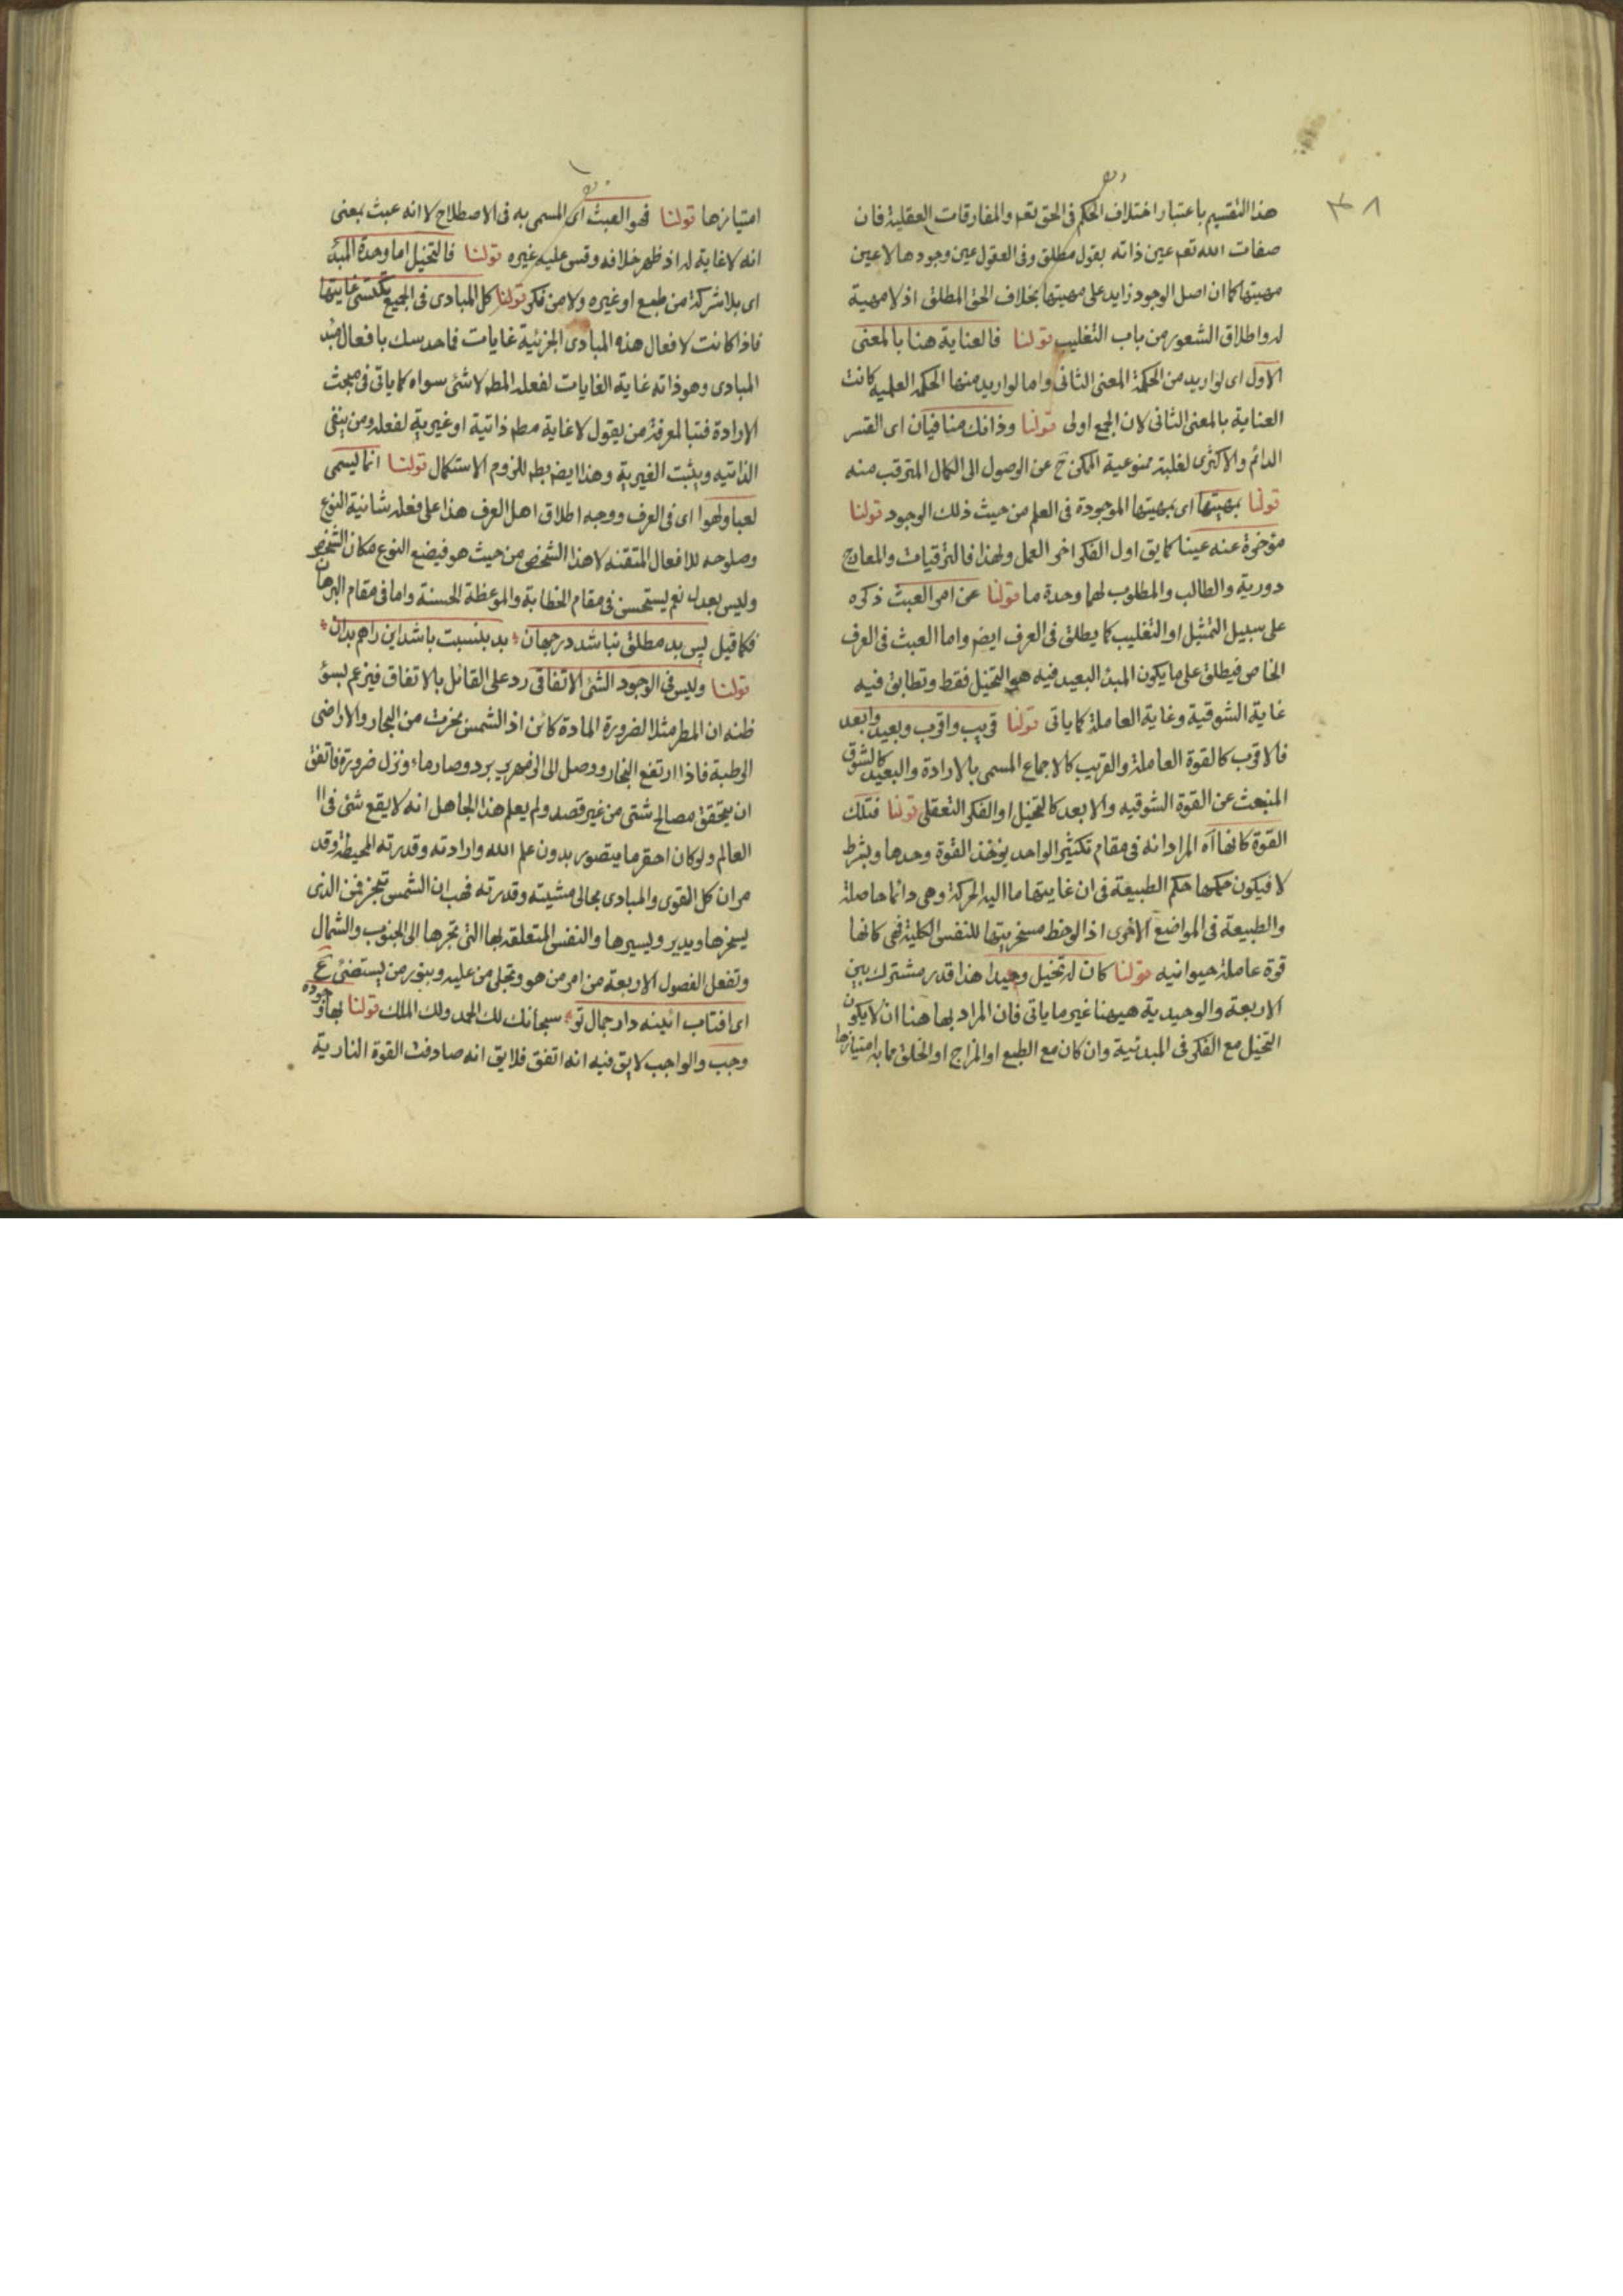 ٣٨
هذا التقسيم باعتبار اختلاف الحكم فى الحق تعم والمفارقات العقلية فان
صفات الله تعم عين ذاته بقول مطلق وفى العقول عين وجودها لا عين
مهيتها كما ان اصل الوجود زايد على مهيتها بخلاف الحق المطلق اذ لا مهية
له واطلاق الشعور من باب التغليب قولنا فالعناية هنا بالمعنى
الاول اى لو اريد من الحكمة المعنى الثانى واما لو اريد منها الحكمة العلمية كانت
العناية بالمعنى الثانى لان الجمع اولى قولنا وذانك منافيان اى القسر
الدائم والاكثرى لغلبة ممنوعية الممكن ح عن الوصول الى الكمال المترقب منه
قولنا بمهيتها اى بمهيتها الموجودة فى العلم من حيث ذلك الوجود قولنا
مؤخرة عنه عينا كما يق اول الفكر اخر العمل ولهذا فالترقيات والمعارج
دورية والطالب والمطلوب لهما وحدة ما قولنا عن امر العبث ذكره
على سبيل التمثيل او التغليب كما يطلق فى العرف ايض واما العبث فى العرف
الخاص فيطلق على ما يكون المبدء البعيد فيه هو التخيل فقط وتطابق فيه
غاية الشوقية وغاية العاملة كما ياتى قولنا قريب واقرب وبعيد وابعد
فالاقرب كالقوة العاملة والقريب كالاجماع المسمى بالارادة والبعيد كالشوق
المنبعث عن القوة الشوقيه والابعد كالتخيل او الفكر التعقلى قولنا فتلك
القوة كانها اه المراد انه فى مقام تكثير الواحد يؤخذ القوة وحدها وبشرط
لا فيكون حكمها حكم الطبيعة فى ان غايتها ما اليه الحركة وهى دائما حاصلة
والطبيعة فى المواضع الاخرى اذ الوحظ مسخريتها للنفس الكلية فهى كانها
قوة عاملة حيوانيه قولنا كان له تخيل وحيدا هذا قدر مشترك بين
الاربعة والوحيدية هيهنا غير ما ياتى فان المراد بها هنا ان لا يكون
التخيل مع الفكر فى المبدئية وان كان مع الطبع او المزاج او الخلق مما به امتيازها
امتيازها قولنا فهو العبث اى المسمى به فى الاصطلاح لا انه عبث بمعنى
انه لا غاية له اذ ظهر خلافه وقس عليه غيره قولنا فالتخيل اما وحده المبدء
اى بلا شركة من طبع او غيره ولا من فكر قولنا كل المبادى فى الجميع تكتسى غايتها
فاذا كانت لافعال هذه المبادى الجزئية غايات فما حدسك بافعال مبدء
المبادى وهو ذاته غاية الغايات لفعله المطم لا شئ سواه كما ياتى فى مبحث
الارادة فتبا لمعرفة من يقول لا غاية مطم ذاتية او غيرية لفعله ومن ينفى
الذاتيه ويثبت الغيرية وهذا ايض بطم للزوم الاستكمال قولنا انما ليسمى
لعبا ولهوا اى فى العرف ووجه اطلاق اهل العرف هذا على فعله شانية النوع
وصلوحه للافعال المتقنه لا هذا الشخص من حيث هو فيضع النوع مكان الشخص
وليس بعدل نعم يستحسن فى مقام الخطابة والموعظة الحسنة واما فى مقام البرهان
فكما قيل پس بد مطلق نباشد در جهان بد بنسبت باشد اين را هم بدان
قولنا وليس فى الوجود الشئ الاتفاقى رد على القائل بالاتفاق فيزعم بسوء
ظنه ان المطر مثلا لضرورة المادة كائن اذ الشمس بخرت من البحار والاراضى
الرطبة فاذا ارتفع البخار ووصل الى الزمهرير برد وصار ماء ونزل ضرورة فاتفق
ان يتحقق مصالح شتى من غير قصد ولم يعلم هذا الجاهل انه لا يقع شئ فى
العالم ولو كان احقر ما يتصور بدون علم الله وارادته وقدرته المحيطة وقد
مر ان كل القوى والمبادى مجالى مشيته وقدرته فهب ان الشمس تبخر فمن الذى
يسخرها ويدير ويسيرها والنفس المتعلقة بها التى تجرها الى الجنوب والشمال
وتفعل الفصول الاربعة من امر من هو وتجلى من عليه وبنور من يستضئ ع
اى افتاب ائينه دار جمال تو سبحانك لك الحمد ولك الملك قولنا بها وجوده
وجب والواجب لا يق فيه انه اتفق فلا يق انه صادفت القوة النارية